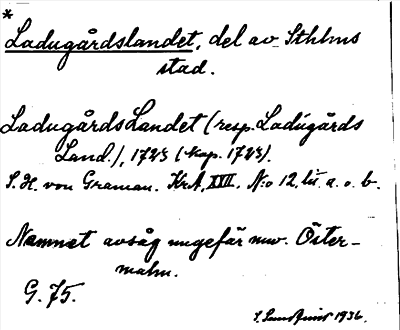 *
Ladugårdslandet, del av Sthlms
stad.
Ladugårds Landet (resp. Ladugårds
Land.), 1723 (kop. 1723).
S. H. von Graman. KrA, XXIII. N:o 12, lit. a. o. b.
Namnet avsåg ungefär nuv. Öster-
malm.
G. 75.
1936.